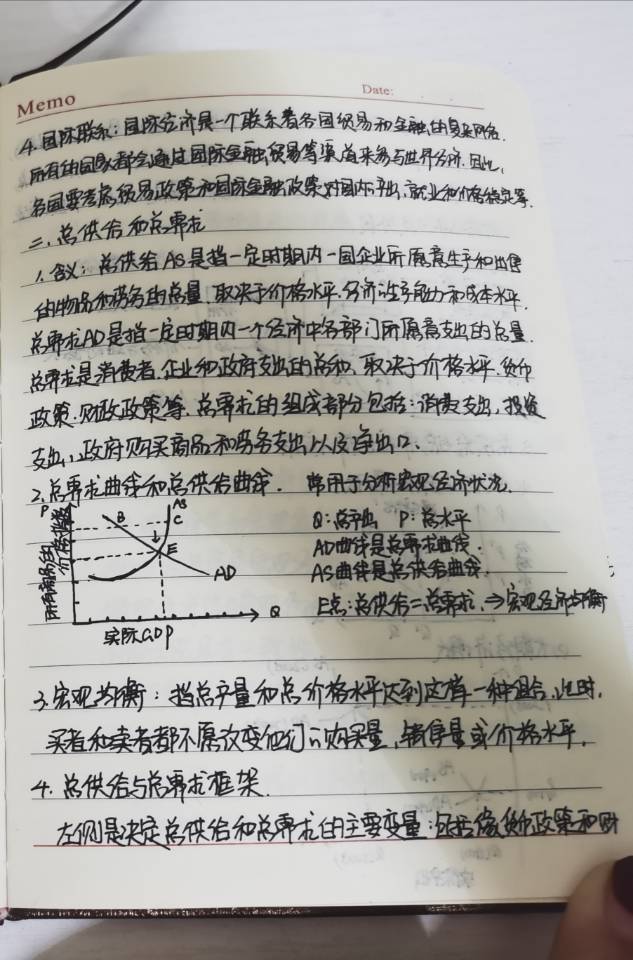 Memo Date:
4. 国际联系：国际经济是一个联系着各国贸易和金融的复杂网络.
所有的国家都会通过国际金融、贸易等渠道来参与世界经济. 因此,
各国要考虑贸易政策和国际金融政策对国内产出、就业和价格稳定等.
二、总供给和总需求
1. 含义：总供给AS是指一定时期内一国企业所愿意生产和出售
的物品和劳务的总量. 取决于价格水平、经济的生产能力和成本水平.
总需求AD是指一定时期内一个经济中各部门所愿意支出的总量.
总需求是消费者、企业和政府支出的总和, 取决于价格水平、货币
政策、财政政策等. 总需求的组成部分包括：消费支出, 投资
支出, 政府购买商品和劳务支出以及净出口.
2. 总需求曲线和总供给曲线. 常用于分析宏观经济状况.
P
所有商品的
价格指数
B
AS
C
E
AD
Q
实际GDP
Q：总产出 P：总水平
AD曲线是总需求曲线.
AS曲线是总供给曲线.
E点：总供给=总需求, ⇒宏观经济均衡
3. 宏观均衡：指总产量和总价格水平达到这样一种组合, 此时,
买者和卖者都不愿改变他们的购买量、销售量或价格水平.
4. 总供给与总需求框架.
左侧是决定总供给和总需求的主要变量：包括像货币政策和财